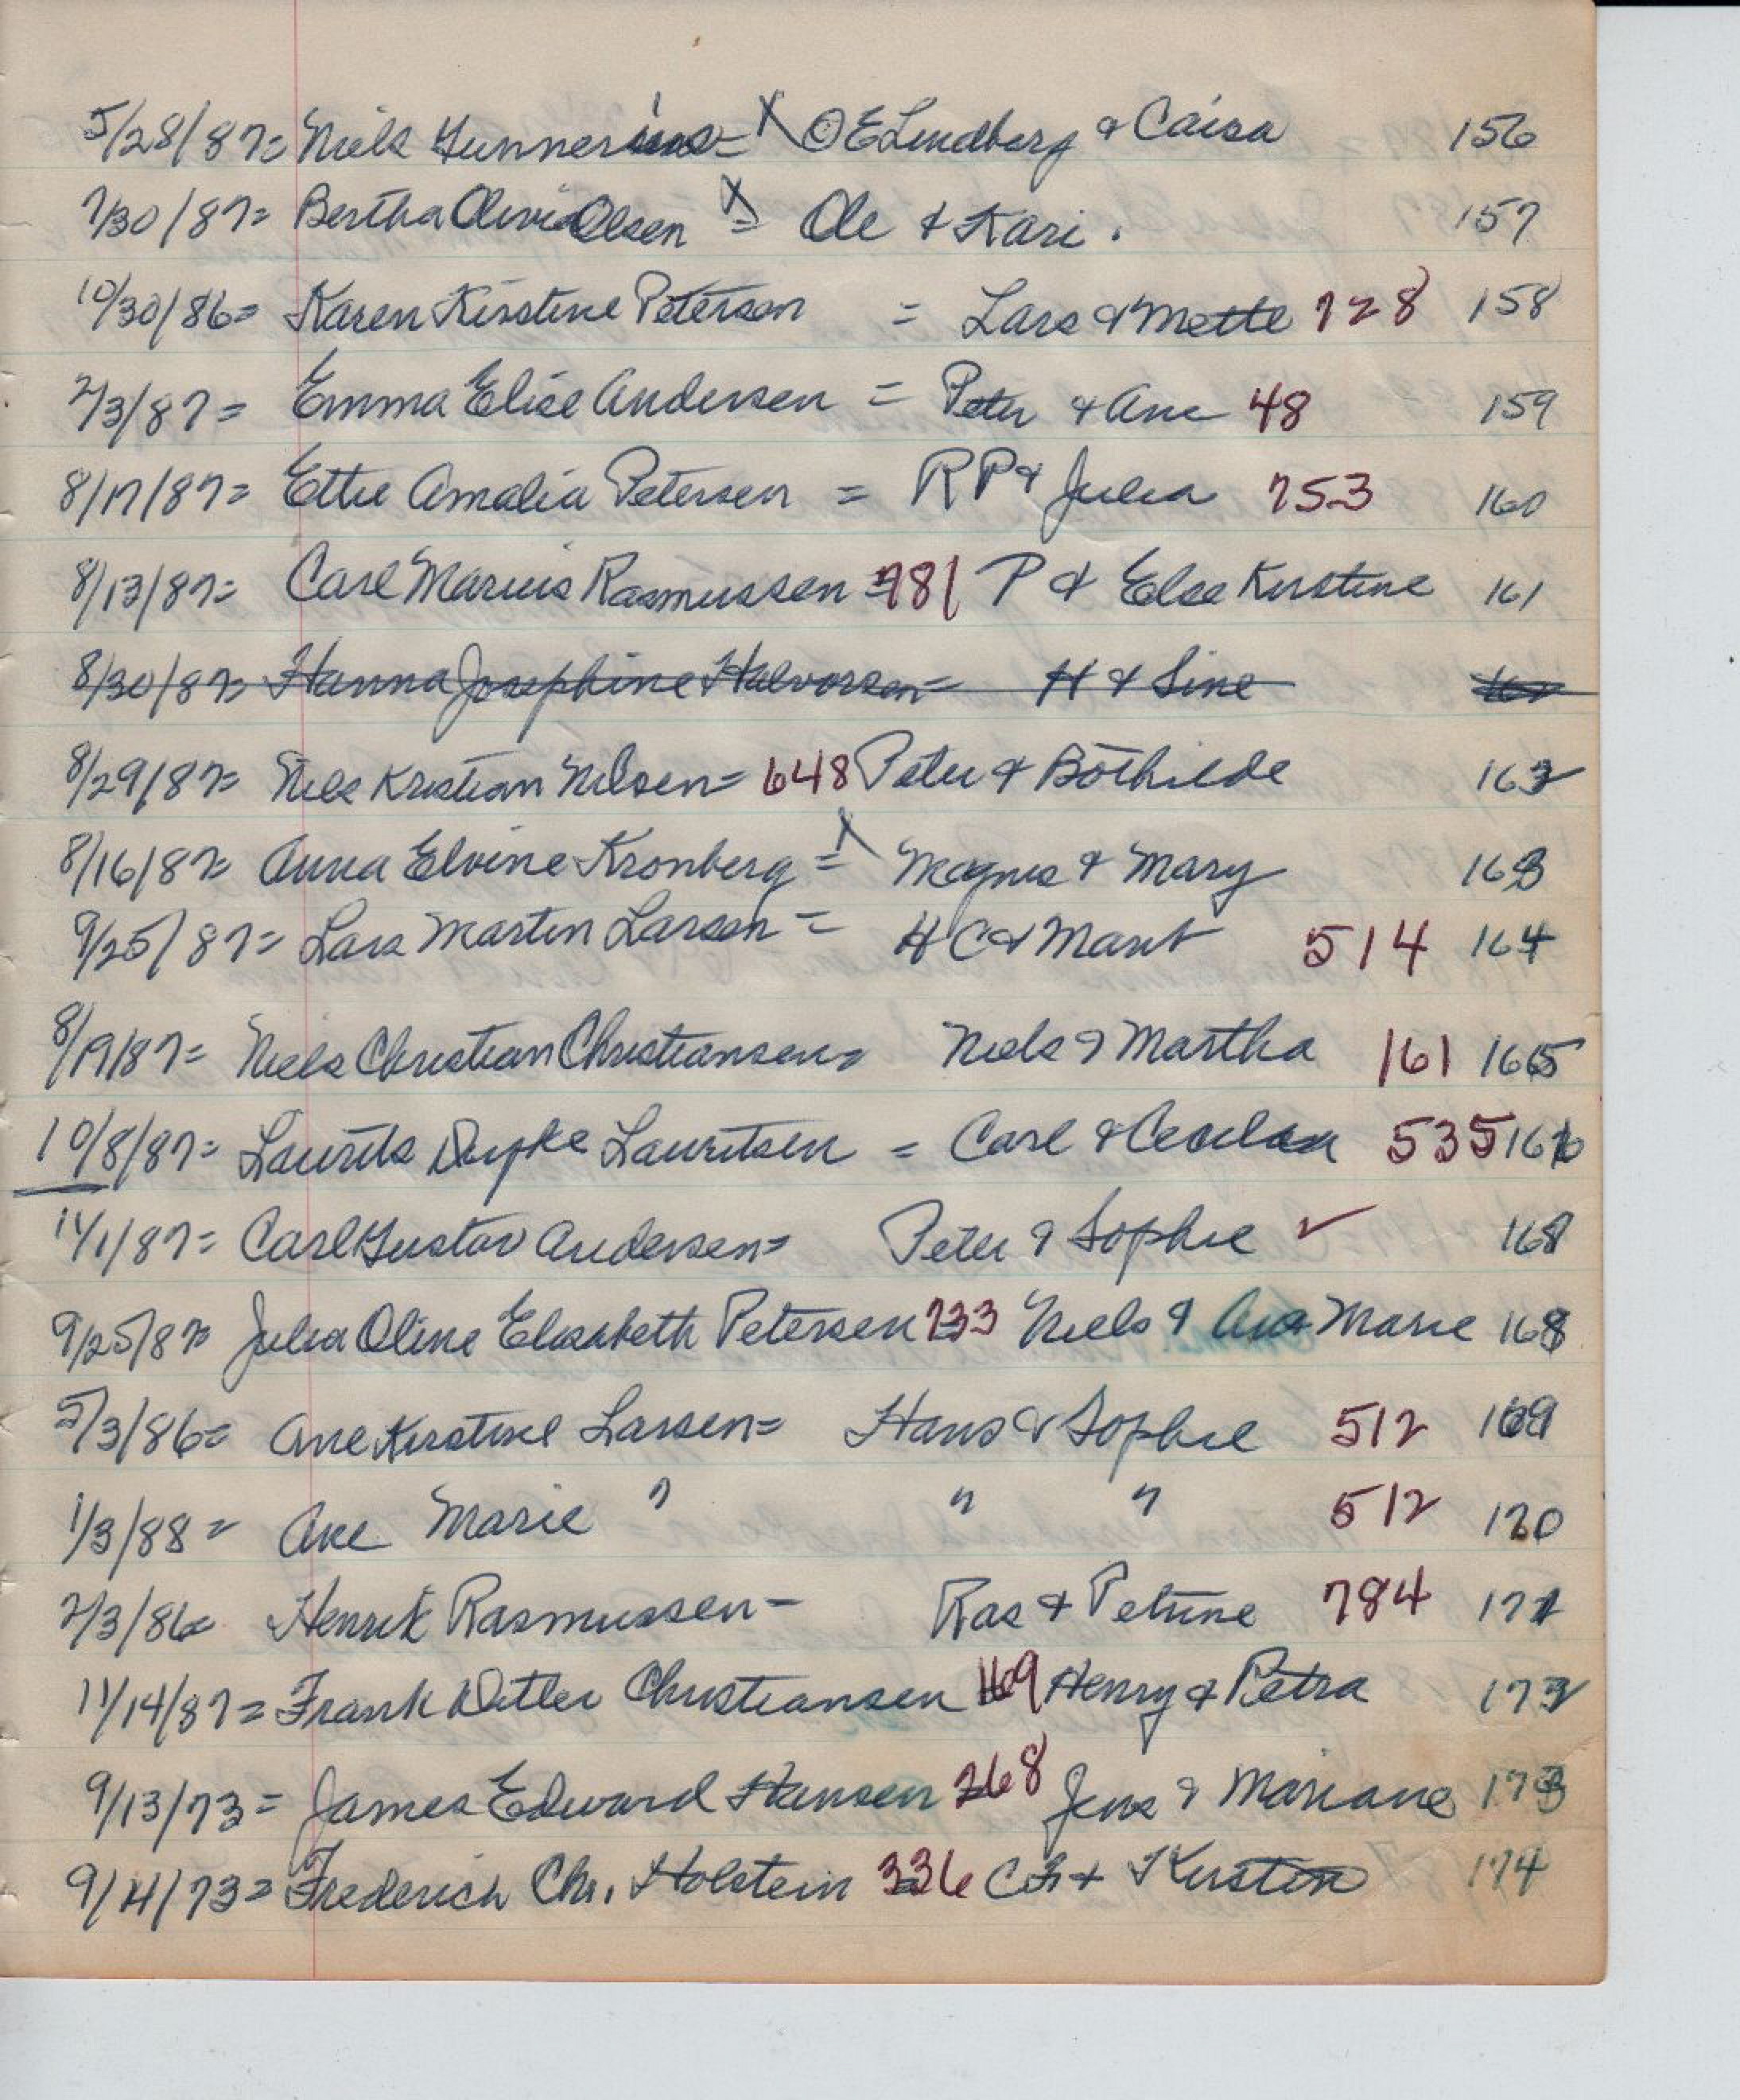 5/28/87= Niels Gunnerius= X OE Lindberg & Caisa 156
7/30/87= Bertha Olivia Olsen X = Ole & Kari. 157
10/30/86= Karen Kirstine Petersen = Lars & Mette 728 158
2/3/87= Emma Elise Andersen = Peter & Ane 48 159
8/17/87= Ettie Amalia Petersen = RP & Julia 753 160
8/13/87= Carl Marius Rasmussen = 781 P & Else Kirstine 161
8/30/87= Hanna Josephine Halvorsen= H & Sine
8/29/87= Niels Kristian Nilsen= 648 Peter & Bothilde 162
8/16/87= Anna Elvine Kronberg = X Magnus & Mary 163
9/25/87= Lars Martin Larsen = HC & Marit 514 164
8/19/87= Niels Christian Christiansen= Niels & Martha 161 165
10/8/87= Laurits Lauritsen = Carl & 535 166
11/1/87= Carl Gustav Andersen= Peter & Sophie ✓ 167
9/25/87= Julia Oline Elisabeth Petersen 733 Niels & Ana Marie 168
5/3/86= Ane Kirstine Larsen= Hans & Sophie 512 169
1/3/88= Ane Marie " " " 512 170
2/3/86= Henrik Rasmussen- Ras & Petrine 784 171
11/14/87= Frank Detlev Christiansen 169 Henry & Petra 172
9/13/73= James Edward Hansen 268 Jens & Mariane 173
9/4/73= Frederich Chr. Holstein 336 Ch & Kirstin 174